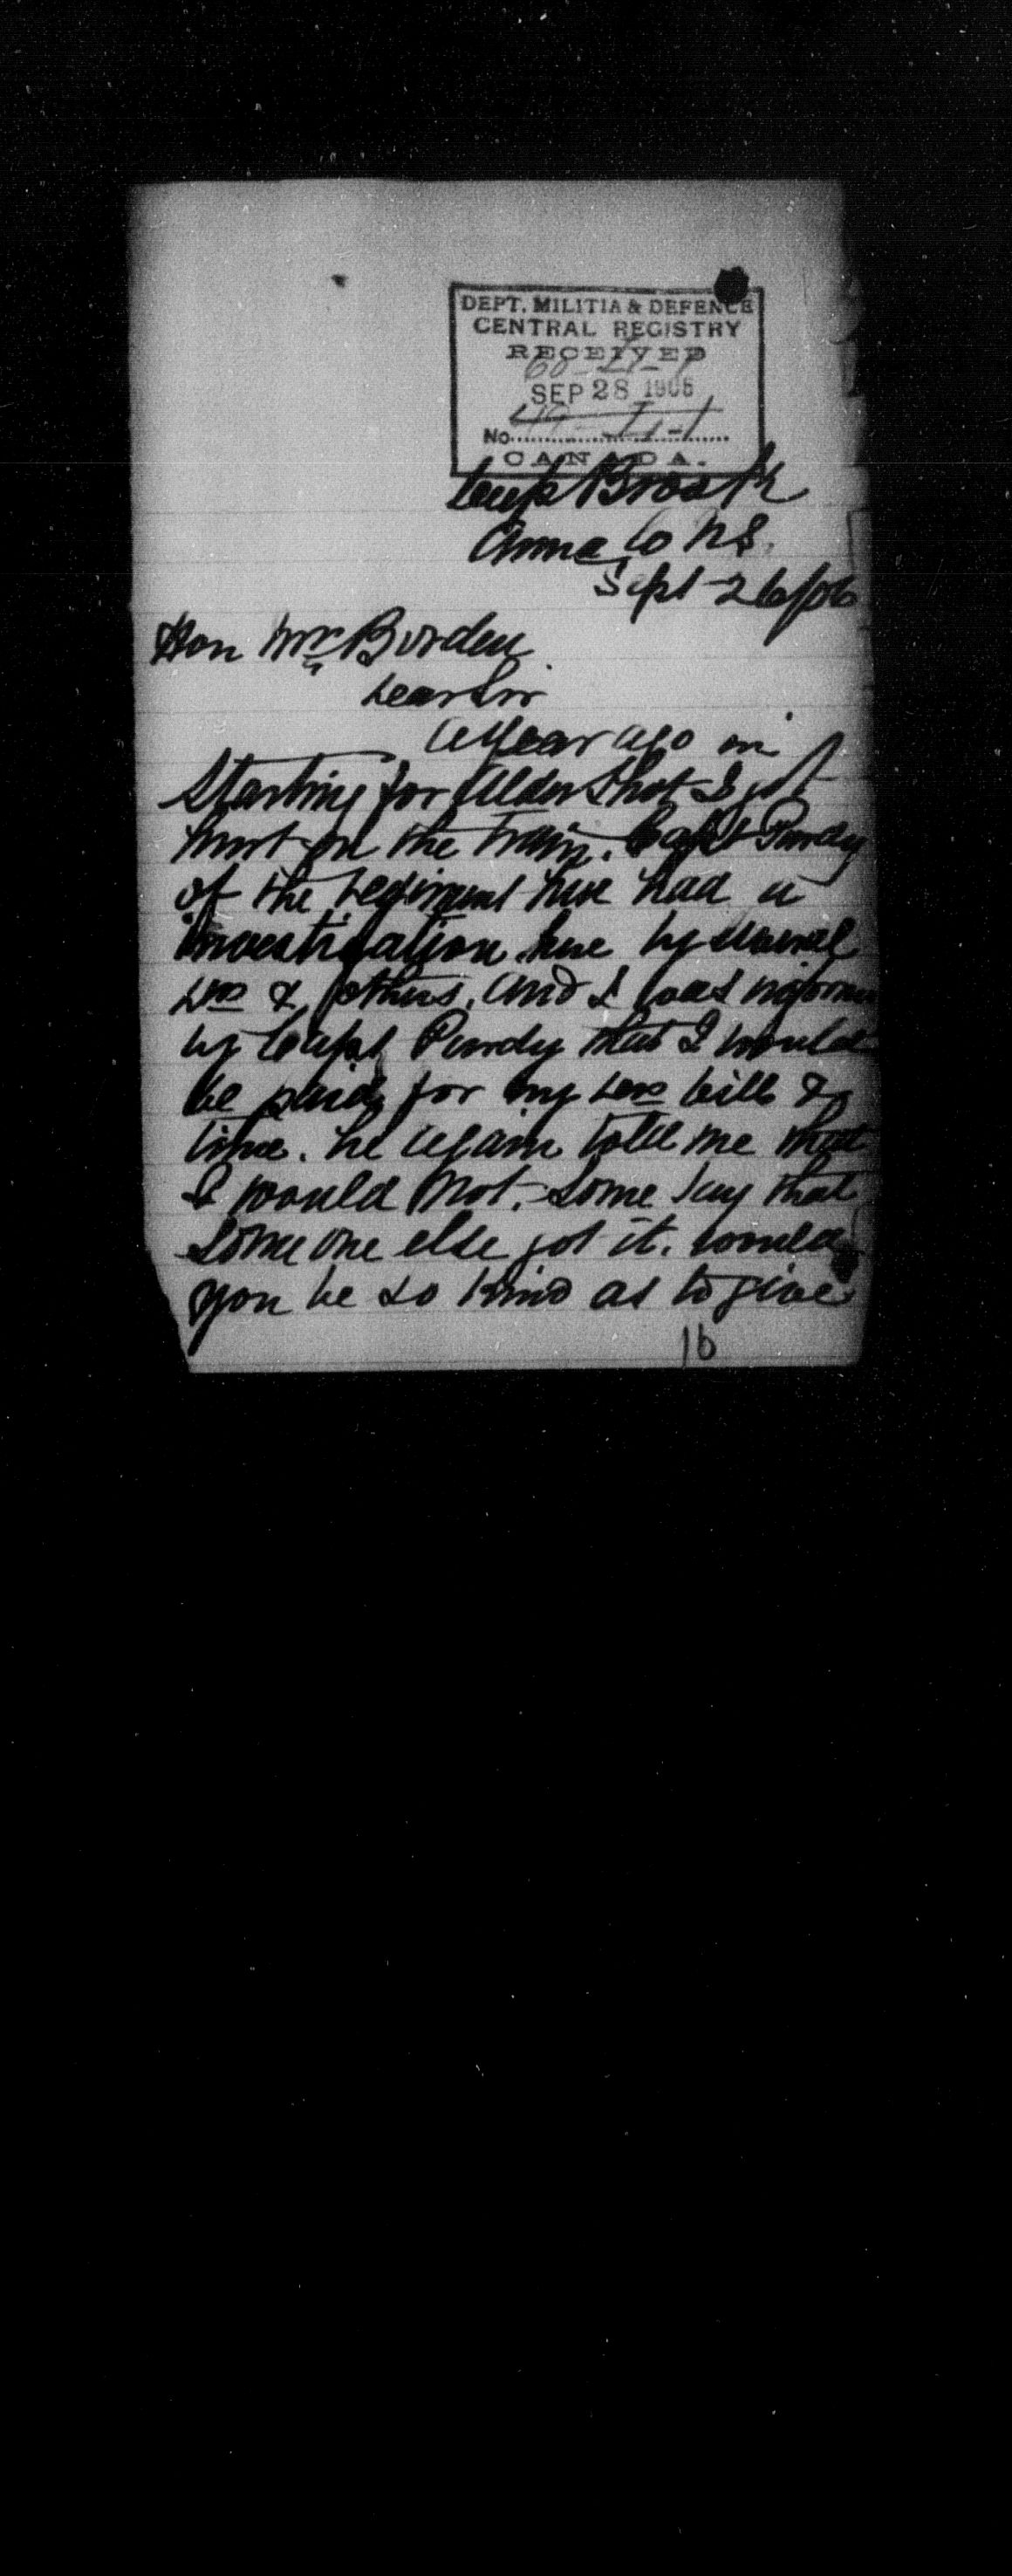 DEPT. MILITIA & DEFENCE
CENTRAL REGISTRY
RECEIVED
SEP 28 1906
No
CANADA.
Anna Co N.S.
Sept 26/06
Hon Mr Borden
Dear Sir
A year ago in
starting for Aldershot I got
hurt on the train. Capt Purdy
of the Regiment here had a
investigation here by several
Drs & others, and I was informed
by Capt Purdy that I would
be paid for my Drs bill &
time. he again told me that
I would not. Some say that
Some one else got it. would
you be so kind as to give
16